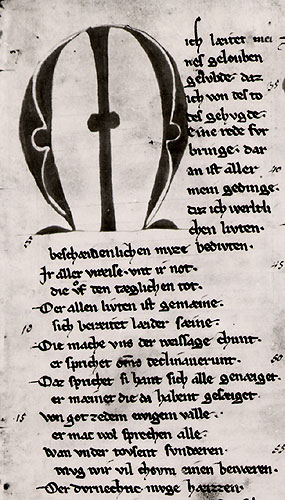 M ich læitet mei
nes gelouben
gelubde daz 35
ich von des to
des gehugde
eine rede fur
bringe· dar
an ist aller 40
mein gedinge·
daz ich werltli
chen livten·
5 beschæidenlichen muze bedivten·
Ir aller vræise· unt ir not· 45
die ůf den tæglichen tot·
Der allen livten ist gemæine·
10 sich beræitet læider sæine·
Die mache uns der wæissage chunt·
er sprichet om̄s declinauerunt· 50
Daz sprichet si habent sich alle genæiget·
er mæinet die da habent gesæiget·
15 von got zedem ewigem valle·
er mac wol sprechen alle·
wan under tovsent sunderen· 55
vil chovm æinen beweren·
muge hæizzen·